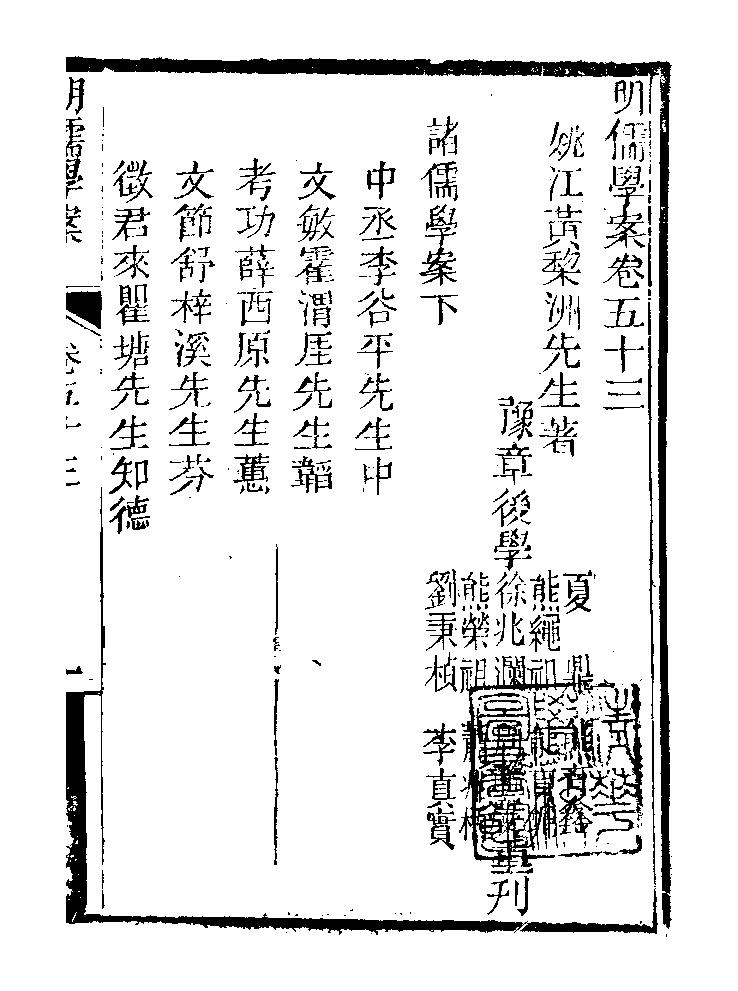 明儒學案卷五十三
姚江黃棃洲先生著
豫章後學
夏鼎 熊
熊繩祖 熊
徐兆瀾
熊榮祖 蕭
劉秉楨 李真實
重刊
諸儒學案下
中丞李谷平先生中
文敏霍渭厓先生韜
考功薛西原先生蕙
文節舒梓溪先生芬
徵君來瞿塘先生知德
明儒學案
卷五十三
一